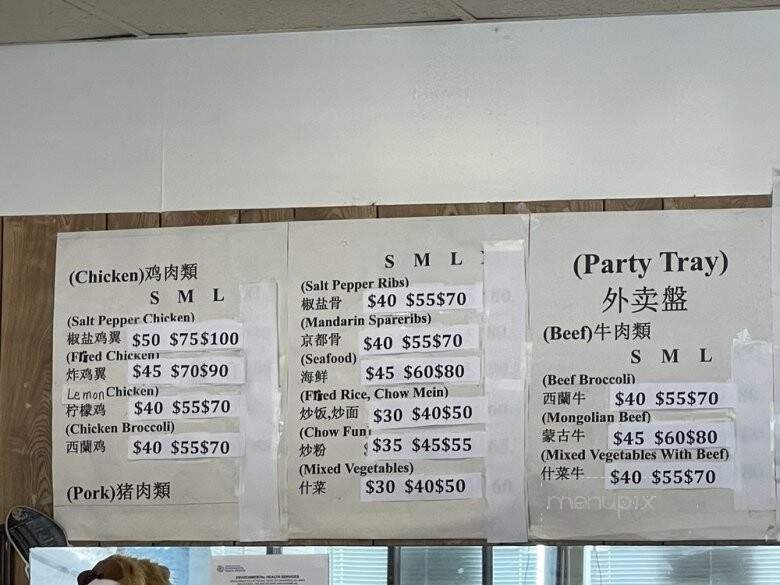 (Chicken)鸡肉類
S M L
(Salt Pepper Chicken)
椒盐鸡翼 $50 $75$100
(Fried Chicken)
炸鸡翼 $45 $70$90
Lemon Chicken)
柠檬鸡 $40 $55$70
(Chicken Broccoli)
西蘭鸡 $40 $55$70
(Pork)猪肉類
S M L
(Salt Pepper Ribs)
椒盐骨 $40 $55$70
(Mandarin Spareribs)
京都骨 $40 $55$70
(Seafood)
海鲜 $45 $60$80
(Fried Rice, Chow Mein)
炒饭,炒面 $30 $40$50
(Chow Fun)
炒粉 $35 $45$55
(Mixed Vegetables)
什菜 $30 $40$50
(Party Tray)
外卖盤
(Beef)牛肉類
S M L
(Beef Broccoli)
西蘭牛 $40 $55$70
(Mongolian Beef)
蒙古牛 $45 $60$80
(Mixed Vegetables With Beef)
什菜牛 $40 $55$70
menupix
ENVIRONMENTAL HEALTH SERVICES